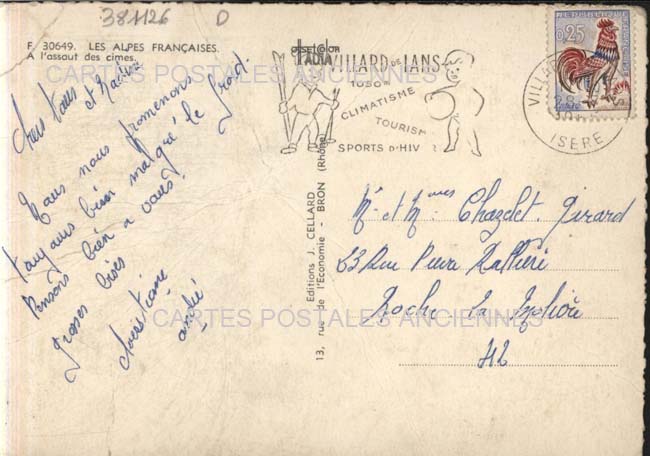 384126 D
F. 30649. LES ALPES FRANÇAISES.
A l'assaut des cimes.
CARTES POSTALES ANCIENNES
Chers tous et Nadine
Nous nous promenons
toujours bien malgré le froid.
Pensons bien a vous.
Grosses bises
Christiane
andré
Editions J. CELLARD
13, rue de l'Economie - BRON (Rhône)
VILLARD DE LANS
1050m
CLIMATISME
TOURISM
SPORTS D'HIV
0,25
VILLA
ISERE
Mr et Mmes Chazelet. Girard
33 Rue Pierre
Roche La Molière
42
CARTES POSTALES ANCIENNES